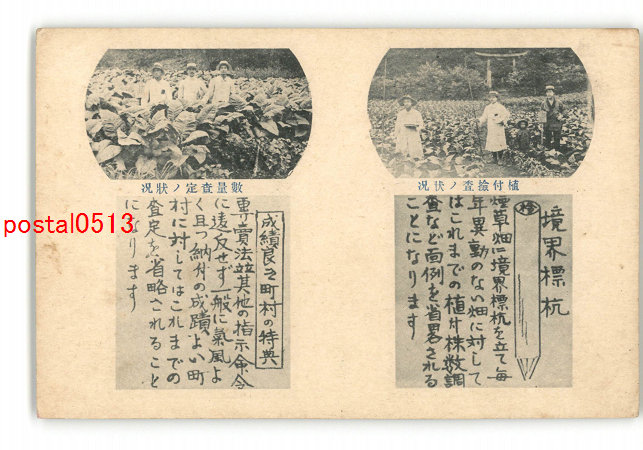 植付撿査ノ狀况
境界標杭
煙
煙草畑に境界標杭を立て每
年異動のない畑に対して
はこれまでの植付株数調
查など面倒を省畧される
ことになります
數量査定ノ狀况
成績良き町村の特典
專賣法並其他の指示命令
に違反せず一般に氣風よ
く且つ納付の成蹟よい町
村に対してはこれまでの
査定を省略されること
になります
postal0513